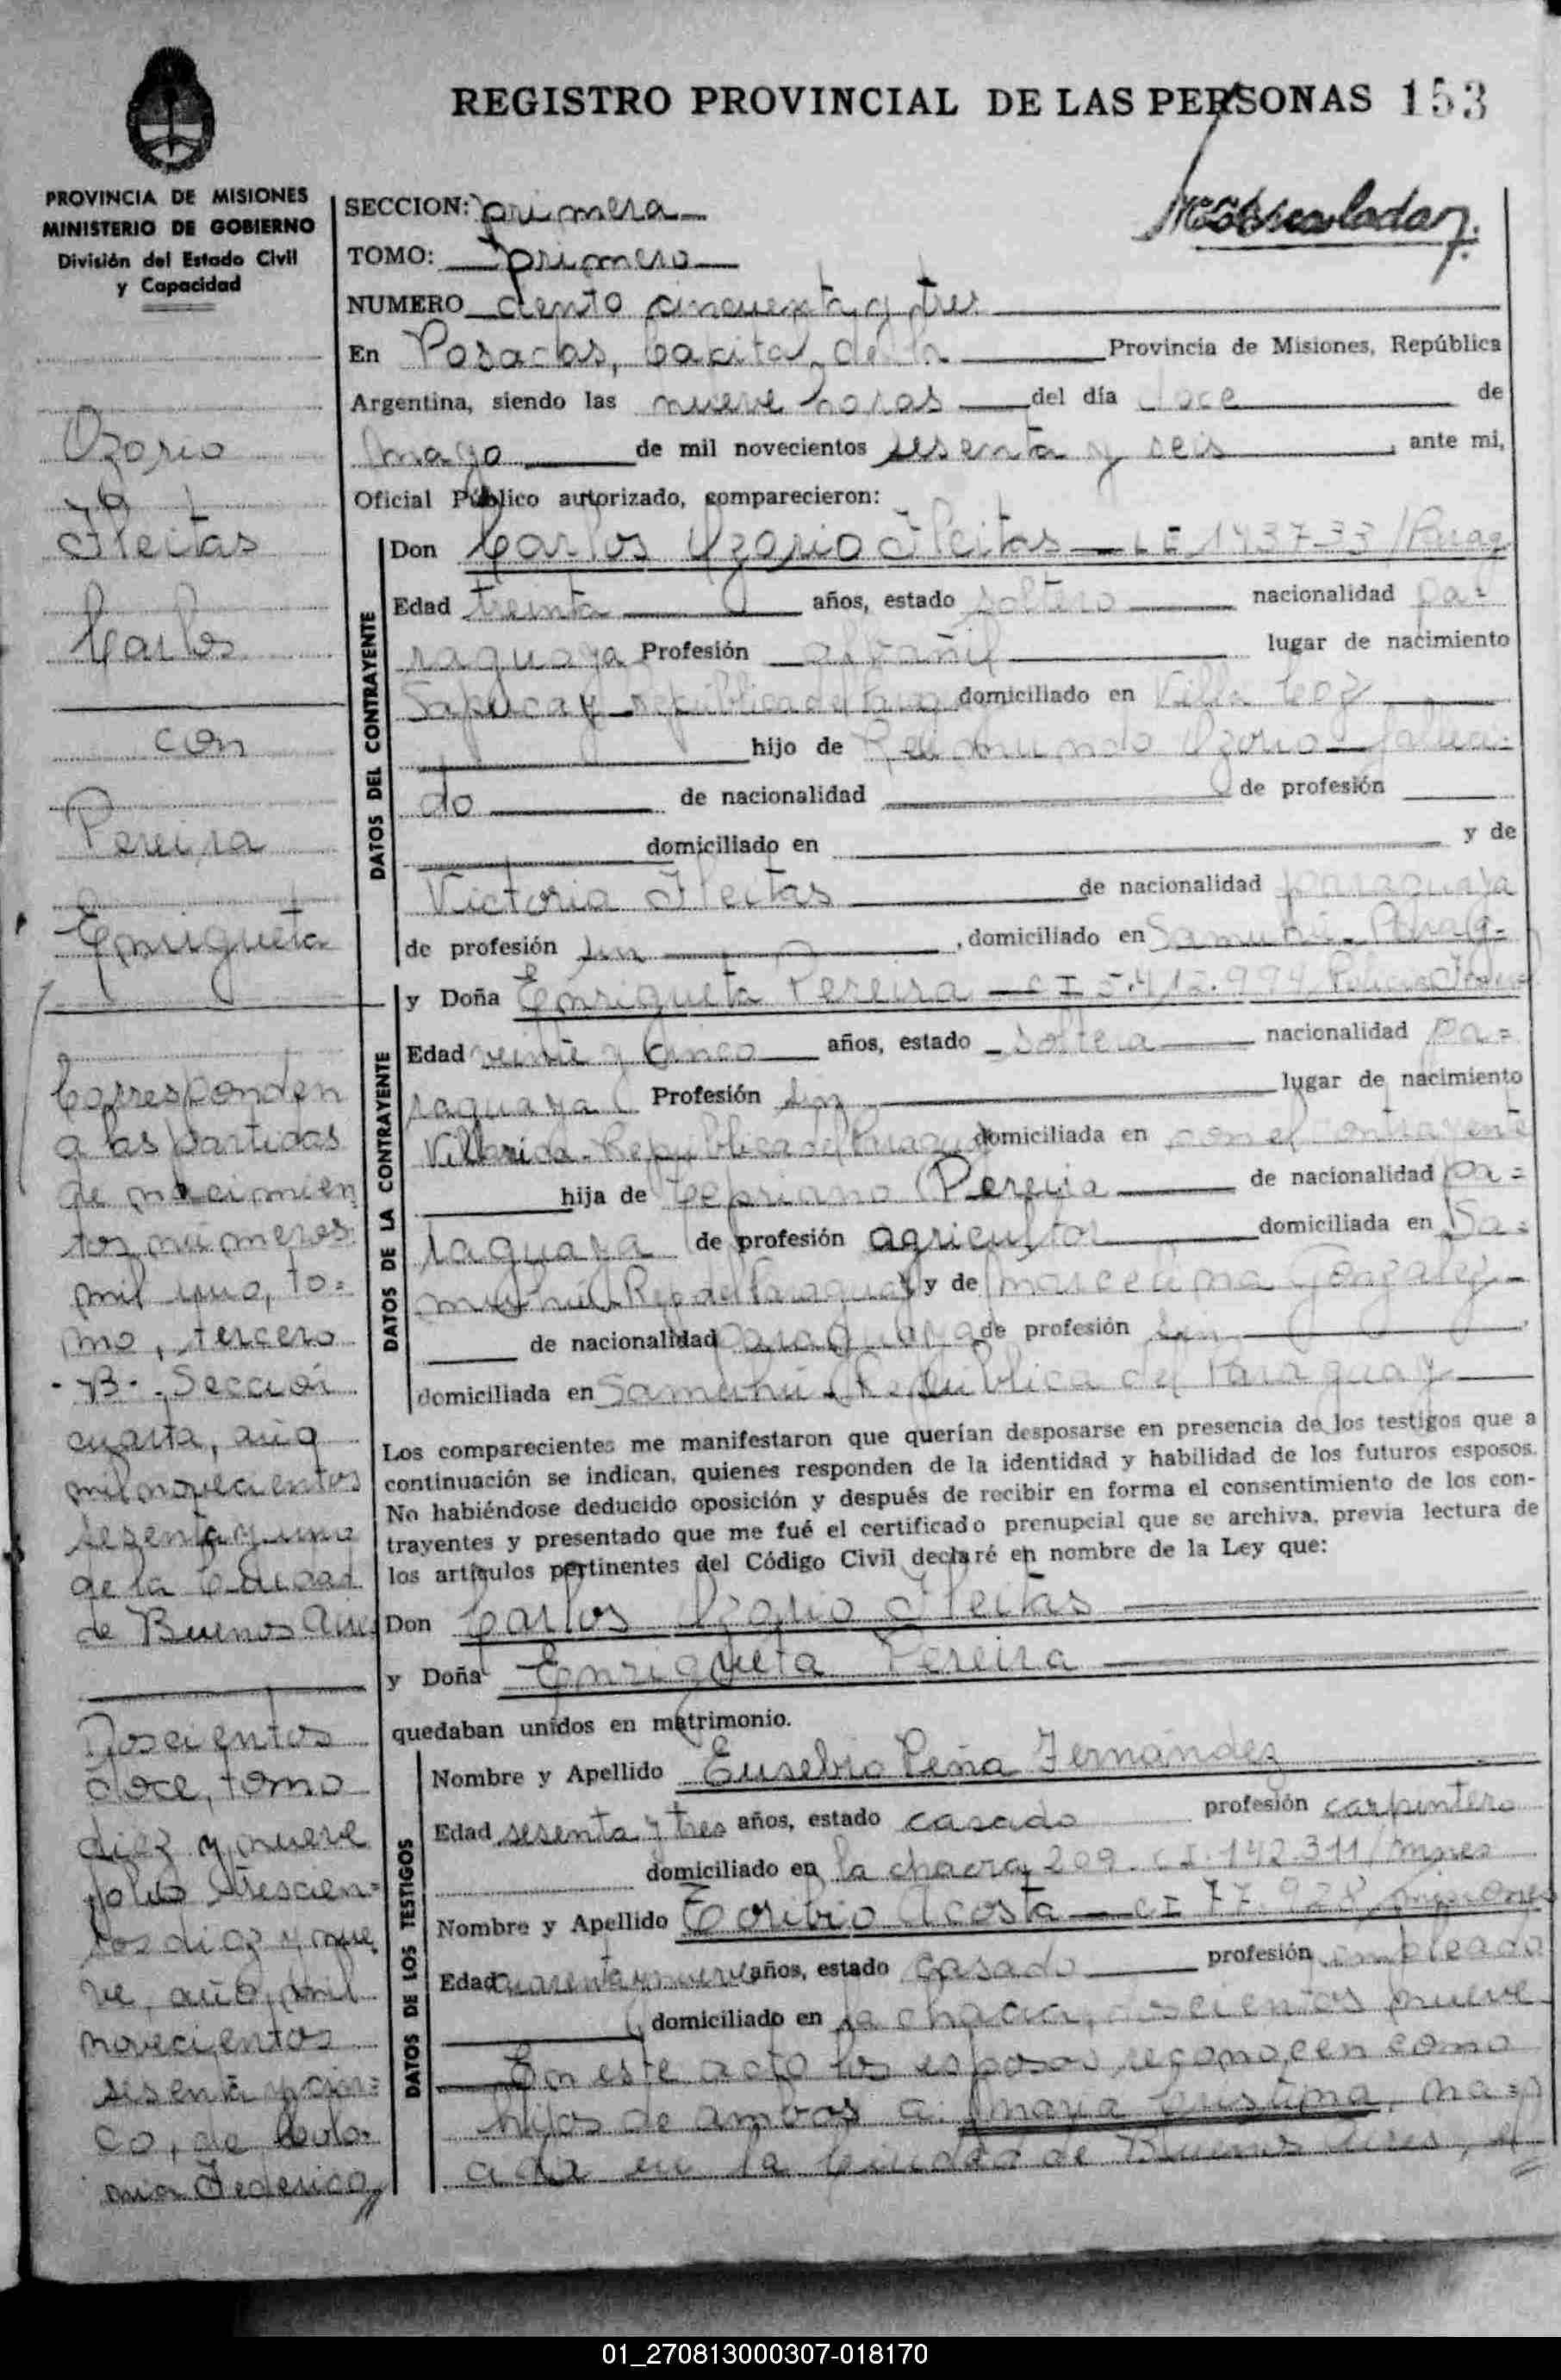 REGISTRO PROVINCIAL DE LAS PERSONAS 153
PROVINCIA DE MISIONES
MINISTERIO DE GOBIERNO
División del Estado Civil
y Capacidad
Ozorio
Fleitas
Carlos
con
Pereira
Enriqueta
Corresponden
a las partidas
de nacimien
tos números
mil uno, to=
mo, tercero
-B-. Sección
cuarta, año
mil novecientos
sesenta y uno
de la Ciudad
de Buenos Aires
Doscientos
doce, tomo
diez y nueve
folio trescien=
tos diez y nue
ve, año, mil
novecientos
sesenta y cin=
co, de Colo=
nia Federico
SECCION: primera
TOMO: primero
NUMERO ciento cincuenta y tres
En Posadas, Capital de la Provincia de Misiones, República
Argentina, siendo las nueve horas del día doce de
mayo de mil novecientos sesenta y seis, ante mi,
Oficial Público autorizado, comparecieron:
DATOS DEL CONTRAYENTE
Don Carlos Ozorio Fleitas
Edad treinta años, estado soltero nacionalidad pa=
raguaya Profesión albañil lugar de nacimiento
Sapucay República del Parag domiciliado en Villa
hijo de Ozorio
do de nacionalidad de profesión
domiciliado en y de
Victoria Fleitas de nacionalidad paraguaya
de profesión sin, domiciliado en Samuhú - Parag-
DATOS DE LA CONTRAYENTE
y Doña Enriqueta Pereira
Edad veinte y cinco años, estado soltera nacionalidad pa=
raguaya Profesión sin lugar de nacimiento
República del Paraguay domiciliada en con el contrayente
hija de Cepriano Pereira de nacionalidad pa=
raguaya de profesión agricultor domiciliada en Sa=
muhú Rep del Paraguay y de Marcelina Gonzalez
de nacionalidad paraguaya de profesión sin
domiciliada en Samuhú República del Paraguay
Los comparecientes me manifestaron que querían desposarse en presencia de los testigos que a
continuación se indican, quienes responden de la identidad y habilidad de los futuros esposos.
No habiéndose deducido oposición y después de recibir en forma el consentimiento de los con-
trayentes y presentado que me fué el certificado prenupcial que se archiva, previa lectura de
los artículos pertinentes del Código Civil declaré en nombre de la Ley que:
Don Carlos Ozorio Fleitas
y Doña Enriqueta Pereira
quedaban unidos en matrimonio.
DATOS DE LOS TESTIGOS
Nombre y Apellido Eusebio Peña Fernández
Edad sesenta y tres años, estado casado profesión carpintero
domiciliado en la chacra 209. C.I. 142.311/Mnes
Nombre y Apellido Toribio Acosta — CI 77.928/Misiones
Edad cuarenta y nueve años, estado casado profesión empleado
domiciliado en la chacra, doscientos nueve
En este acto los esposos reconocen como
hijos de ambos a: María Cristina, na=
cida en la Ciudad de Buenos Aires, el
01_270813000307-018170